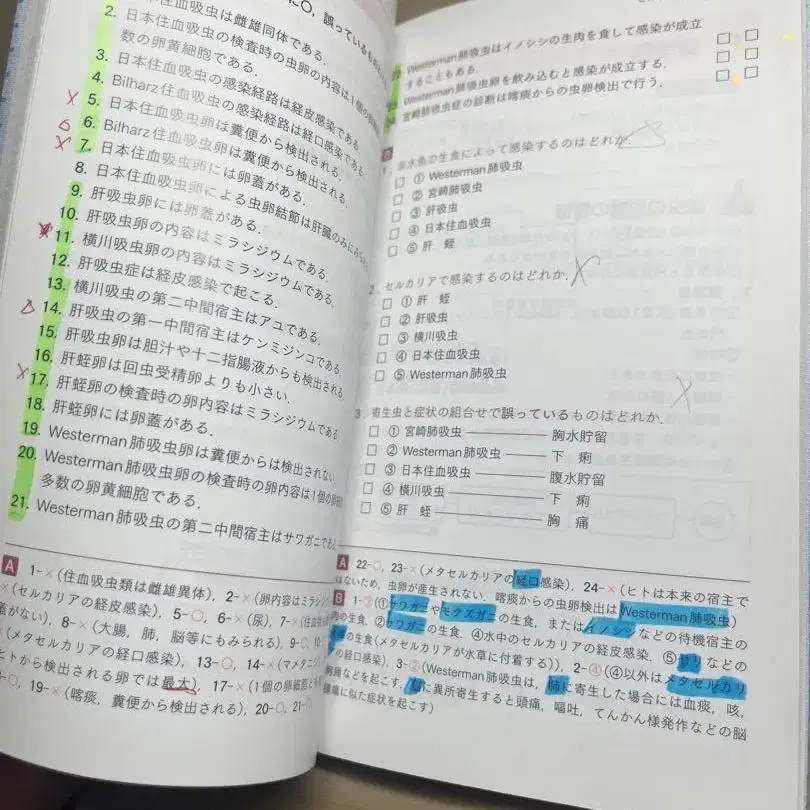 に○，誤っているも
住血吸虫は雌雄同体である．
2. 日本住血吸虫の検査時の虫卵の内容は1個の
数の卵黄細胞である．
3. 日本住血吸虫の感染経路は経皮感染である
4. Bilharz住血吸虫の感染経路は経口感染である．
5. 日本住血吸虫卵は糞便から検出される．
6. Bilharz住血吸虫卵は糞便から検出される．
7. 日本住血吸虫卵には卵蓋がある．
8. 日本住血吸虫卵による虫卵結節は肝臓のみにみ
9. 肝吸虫卵には卵蓋がある．
10. 肝吸虫卵の内容はミラシジウムである．
11. 横川吸虫卵の内容はミラシジウムである．
12. 肝吸虫症は経皮感染で起こる．
13. 横川吸虫の第二中間宿主はアユである．
14. 肝吸虫の第一中間宿主はケンミジンコである．
15. 肝吸虫卵は胆汁や十二指腸液からも検出される．
16. 肝蛭卵は回虫受精卵よりも小さい．
17. 肝蛭卵の検査時の卵内容はミラシジウムである
18. 肝蛭卵には卵蓋がある．
19. Westerman肺吸虫卵は糞便からは検出されない
20. Westerman肺吸虫卵の検査時の卵内容は1個の卵細
多数の卵黄細胞である．
21. Westerman肺吸虫の第二中間宿主はサワガニであ
A 1-×（住血吸虫類は雌雄異体），2-×（卵内容はミラシ
×（セルカリアの経皮感染），5-○，6-×（尿），7-×（住血
蓋がない），8-×（大腸，肺，脳等にもみられる），9-○，10-
（メタセルカリアの経口感染），13-○，14-×（マメタニシ
ヒトから検出される卵では最大），17-×（1個の卵細胞と
-○，19-×（喀痰，糞便から検出される），20-○，21-
Westerman肺吸虫はイノシシの生肉を食して感染が成立
することもある．
Westerman肺吸虫卵を飲み込むと感染が成立する．
宮崎肺吸虫症の診断は喀痰からの虫卵検出で行う．
B
1. 淡水魚の生食によって感染するのはどれか．
□ ① Westerman肺吸虫
□ ② 宮崎肺吸虫
□ ③ 肝吸虫
□ ④ 日本住血吸虫
□ ⑤ 肝 蛭
2. セルカリアで感染するのはどれか．
□ ① 肝 蛭
□ ② 肝吸虫
□ ③ 横川吸虫
□ ④ 日本住血吸虫
□ ⑤ Westerman肺吸虫
3. 寄生虫と症状の組合せで誤っているものはどれか．
□ ① 宮崎肺吸虫 ――― 胸水貯留
□ ② Westerman肺吸虫 ――― 下 痢
□ ③ 日本住血吸虫 ――― 腹水貯留
□ ④ 横川吸虫 ――― 下 痢
□ ⑤ 肝 蛭 ――― 胸 痛
A 22-○，23-×（メタセルカリアの経口感染），24-×（ヒトは本来の宿主で
はないため，虫卵が産生されない．喀痰からの虫卵検出はWesterman肺吸虫）
B 1-③（①サワガニやモクズガニの生食，またはイノシシなどの待機宿主の
肉の生食，②サワガニの生食，④水中のセルカリアの経皮感染，⑤セリなどの
の生食（メタセルカリアが水草に付着する）），2-④（④以外はメタセルカリ
の経口感染），3-②（Westerman肺吸虫は，肺に寄生した場合には血痰，咳，
胸痛などを起こす．脳に異所寄生すると頭痛，嘔吐，てんかん様発作などの脳
腫瘍に似た症状を起こす）